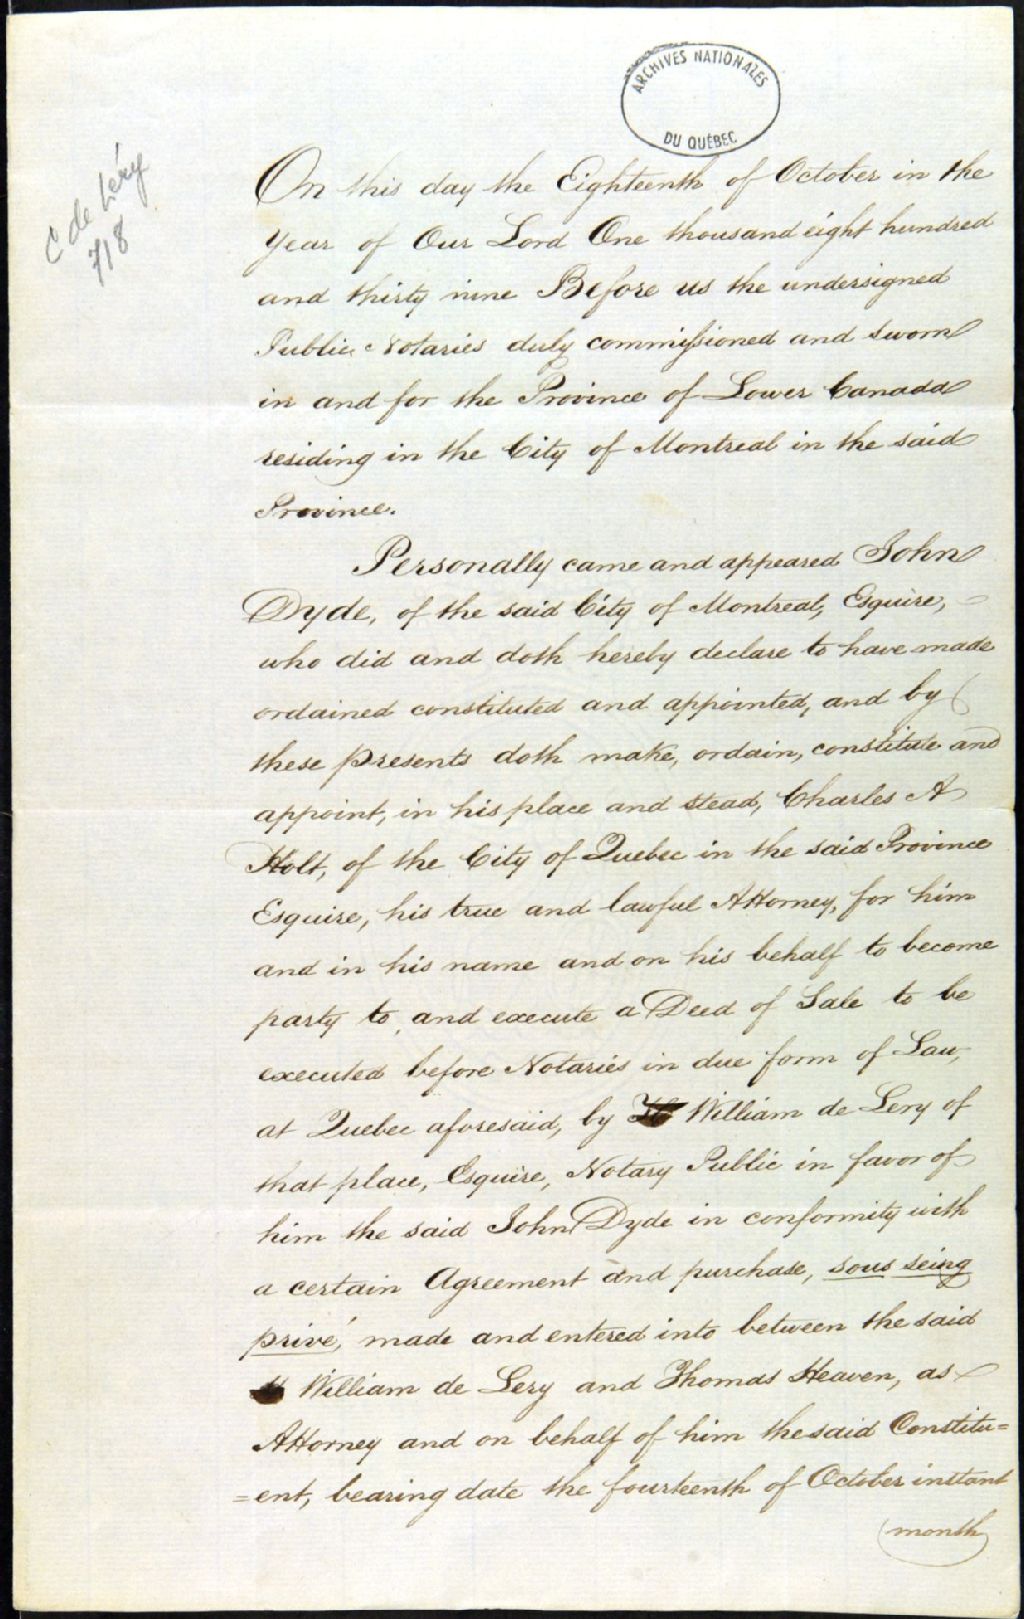 ARCHIVES NATIONALES
DU QUÉBEC
C de Léry
718
On this day the Eighteenth of October in the
Year of Our Lord One thousand eight hundred
and thirty nine Before us the undersigned
Public Notaries duly commissioned and sworn
in and for the Province of Lower Canada
residing in the City of Montreal in the said
Province.
Personally came and appeared John
Dyde, of the said City of Montreal, Esquire,
who did and doth hereby declare to have made
ordained constituted and appointed, and by
these presents doth make, ordain, constitute and
appoint, in his place and stead, Charles A
Holt, of the City of Quebec in the said Province
Esquire, his true and lawful Attorney, for him
and in his name and on his behalf to become
party to, and execute a Deed of Sale to be
executed before Notaries in due form of Law,
at Quebec aforesaid, by William de Lery of
that place, Esquire, Notary Public in favor of
him the said John Dyde in conformity with
a certain Agreement and purchase, sous seing
privé, made and entered into between the said
William de Lery and Thomas Heaven, as
Attorney and on behalf of him the said Constitu=
=ent, bearing date the fourteenth of October instant
month